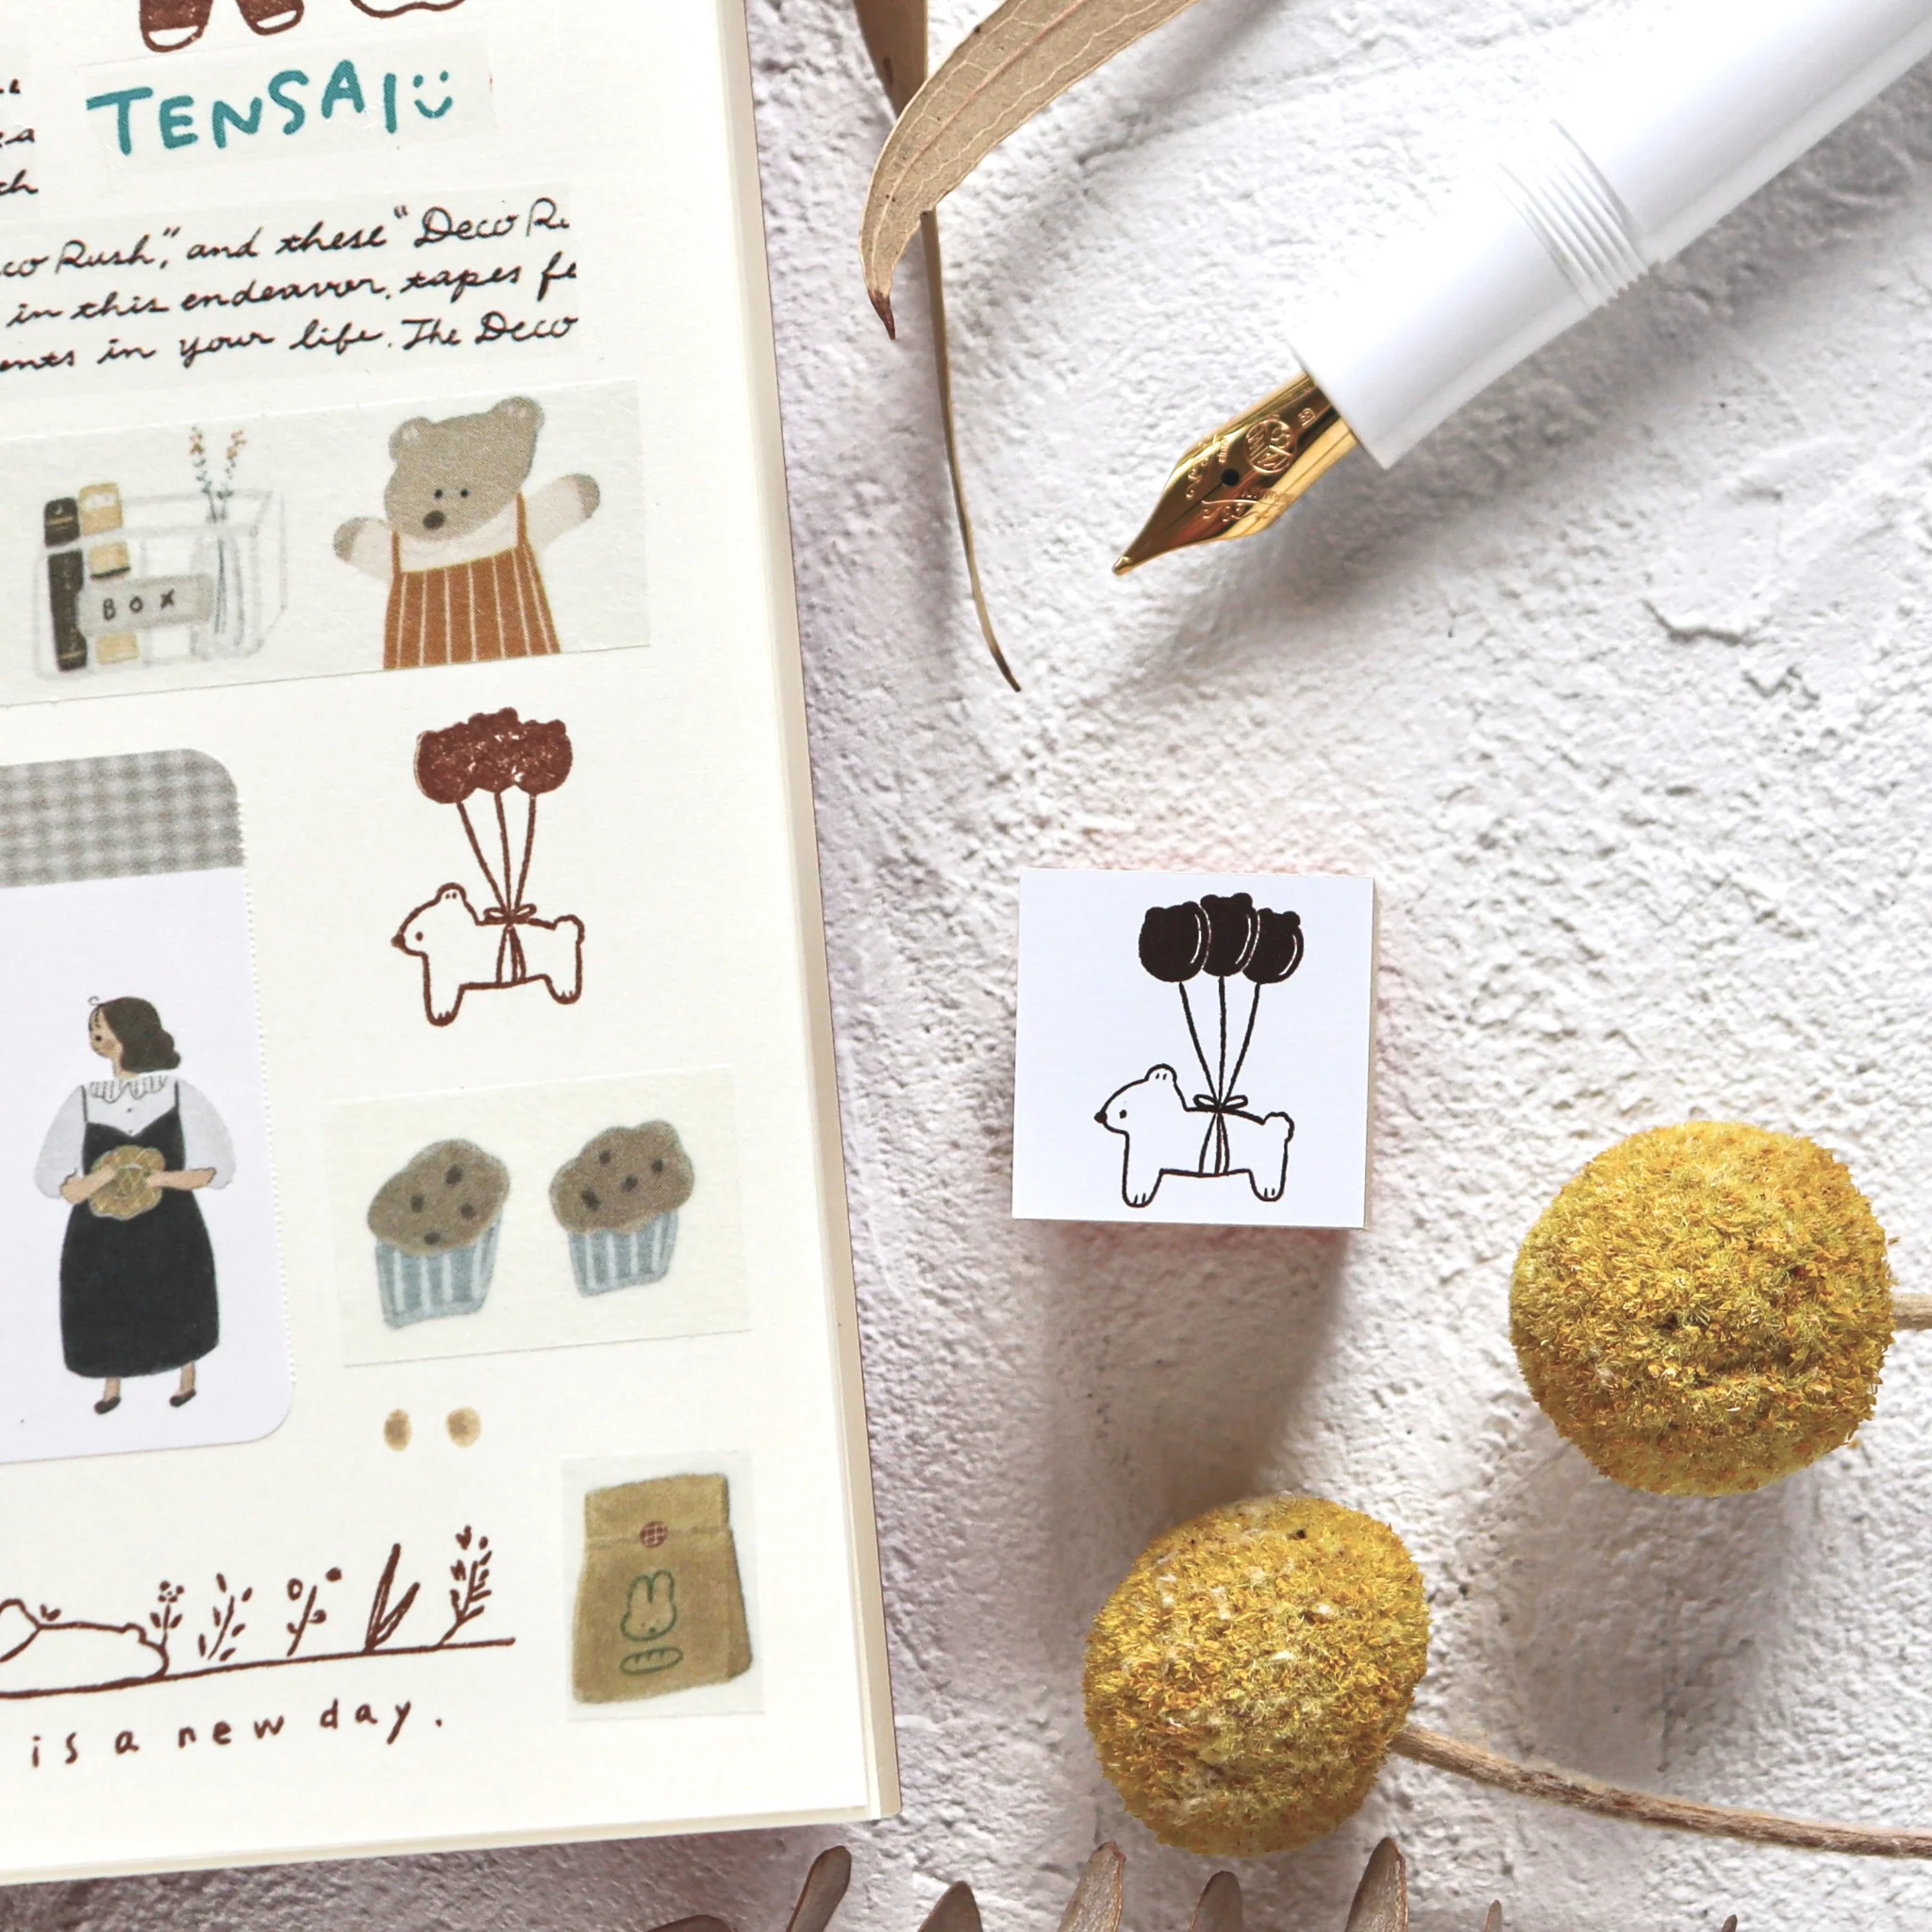 TENSAI
co Rush," and these "Deco
in this endeavor. tapes
in your life. The Deco
BOX
is a new day.